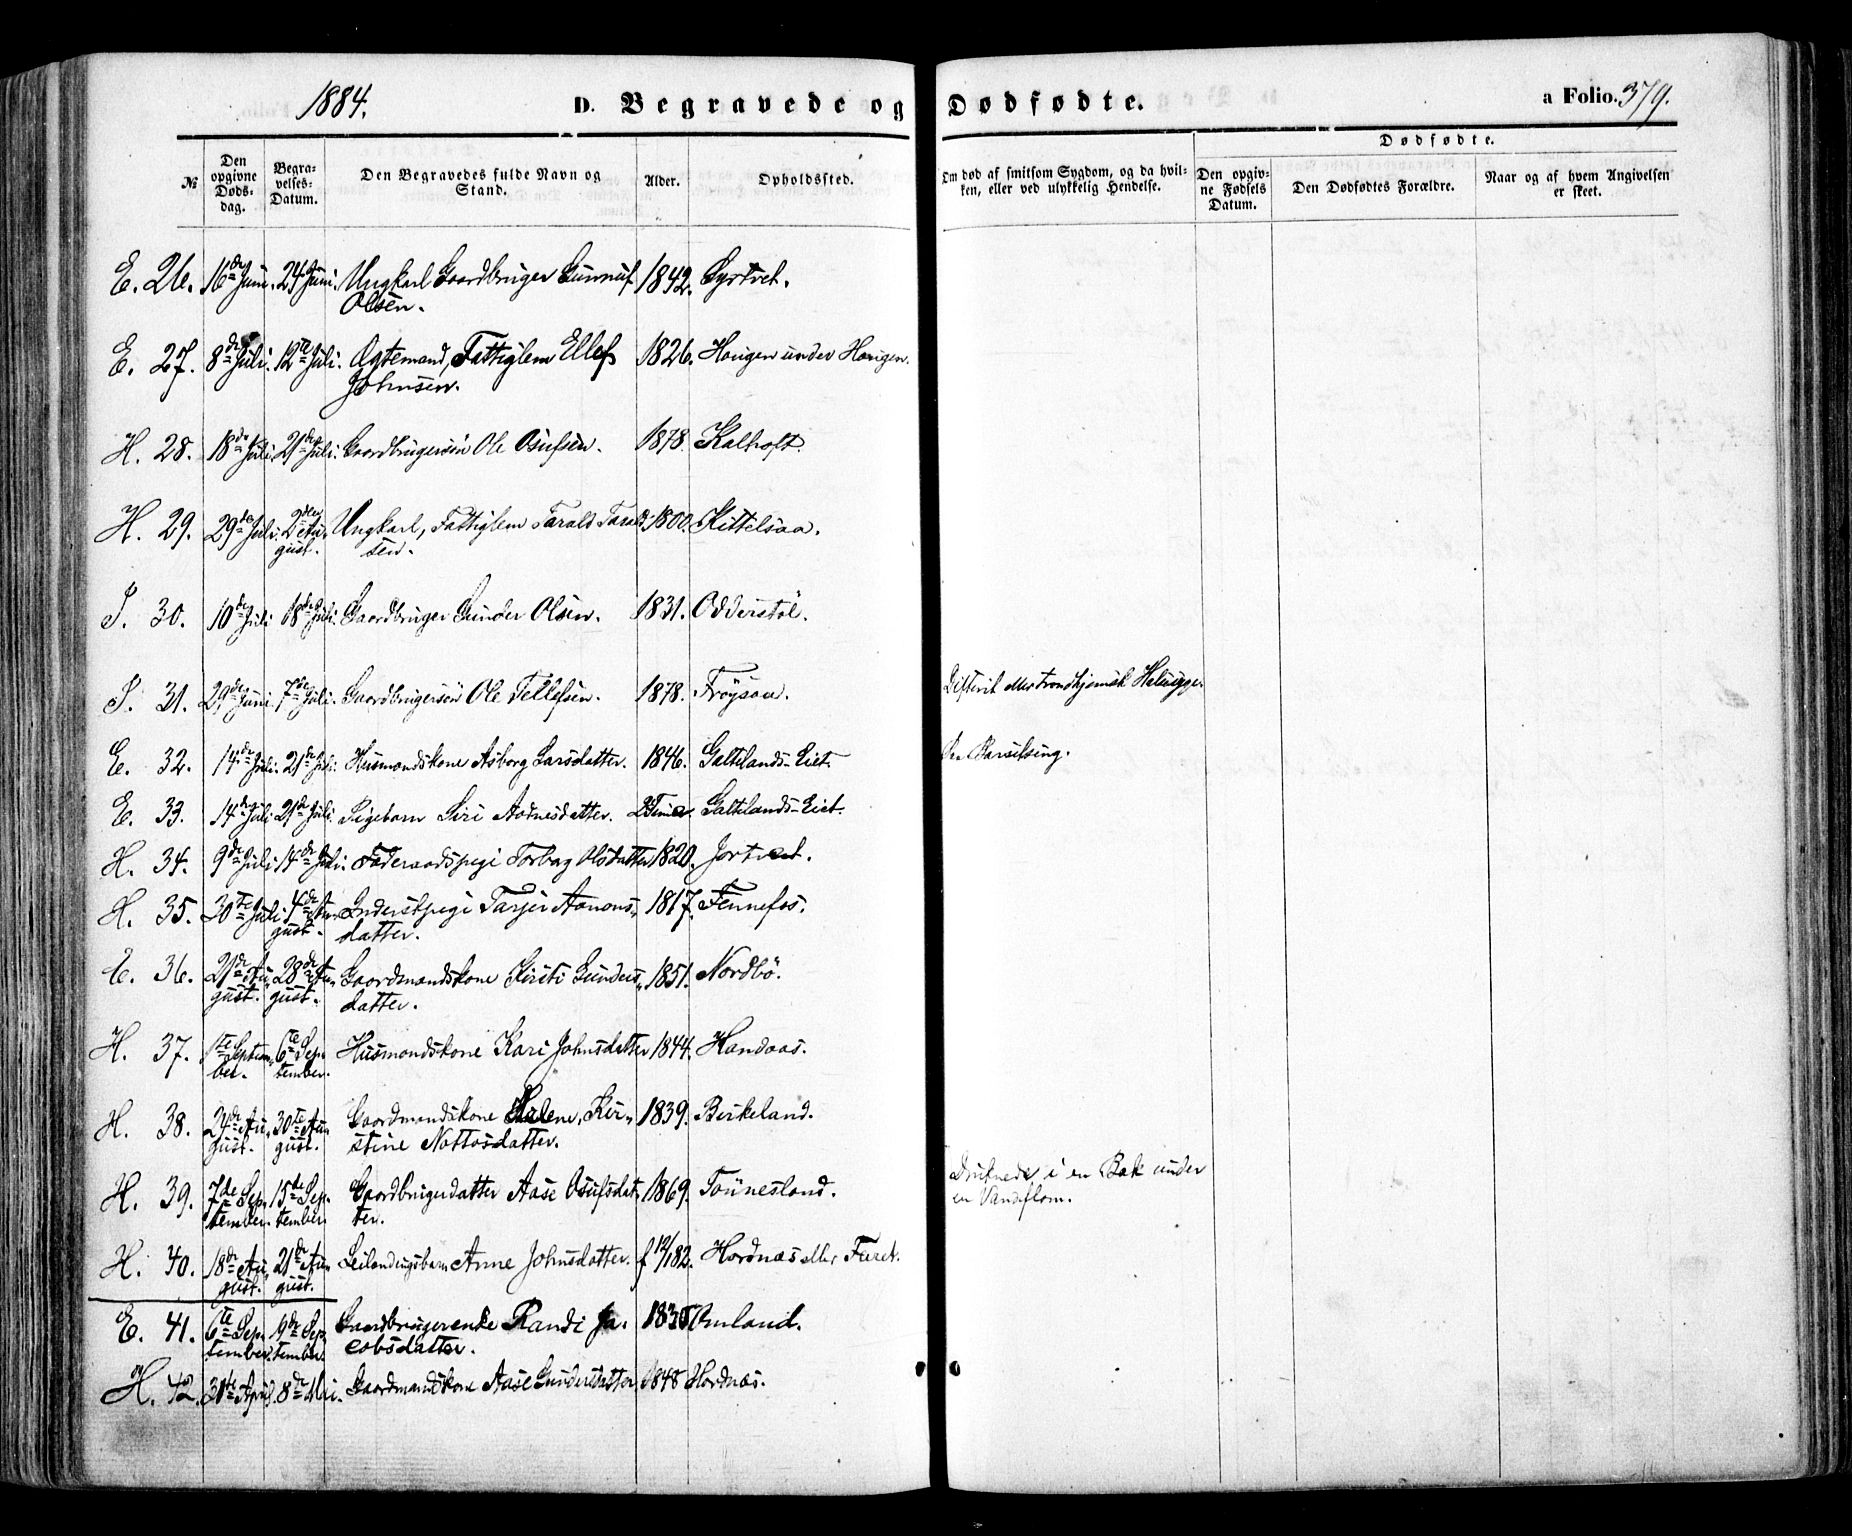 1884.
D. Begravede og Dødfødte.
a Folio. 379.
Dødfødte.
№
Den opgivne Døds-dag.
Begra-velses-Datum.
Den Begravedes fulde Navn og Stand.
Alder.
Opholdssted.
Om død af smitsom Sygdom, og da hvil-ken, eller ved ulykkelig Hendelse.
Den opgiv-ne Fødsels Datum.
Den Dødfødtes Forældre.
Naar og af hvem Angivelsen er skeet.
E. 26. 16de Juni. 24 Juni. Ungkarl Gaardbruger Gunnuf 1842. Syrtvet.
Olsen.
E. 27. 8de Juli. 12te Juli. Ægtemand, Fattiglem Ellef 1826. Haugen under Haugen.
Johnsen.
H. 28. 18de Juli. 21de Juli. Gaardbrugersøn Ole Osufsen. 1878. Kalhoft.
H. 29. 29de Juli. 2den Au- Ungkarl, Fattiglem Tarald Tarald- 1800. Kittelsaa.
gust. sen.
I. 30. 10de Juli 18de Juli. Gaardbruger Gunder Olsen. 1831. Odderstøl.
I. 31. 29de Juni. 7de Juli. Gaardbrugersøn Ole Tellefsen. 1878. Frøysaa. Difterit eller trondhjemsk Halssyge.
E. 32. 14de Juli. 21de Juli. Husmandskone Asborg Larsdatter. 1846. Galtelands-Eiet. Barselseng.
E. 33. 14de Juli 21de Juli. Pigebarn Siri Aadnesdatter. 2 Timer. Galtelands-Eiet.
H. 34. 9de Juli 14de Juli. Føderaadspige Torbør Olsdatter 1820. Jortveit.
H. 35. 30te Juli 4de Au- Inderstpige Tarjer Aanons- 1817. Fennefos.
gust. datter.
E. 36. 21de Au- 28de Au- Gaardmandskone Kirsti Gunders- 1851. Nordbø.
gust. gust. datter.
H. 37. 1ste Septem- 6te Sep- Husmandskone Kari Johnsdatter 1844. Haadaas.
ber. tember.
H. 38. 24de Au- 30te Au- Gaardmandskone Helene, Kir- 1839. Birkeland.
gust. gust. stine Nottosdatter.
H. 39. 7de Sep- 15de Sep- Gaardbrugerdatter Aase Osufsdat- 1869. Tønnesland. Druknede i en Bæk under
tember. tember. ter. en Vandflom.
H. 40. 18de Au- 21de Au- Leilendingsbarn Anne Johnsdatter. f 12/182. Hordnæs eller Faret.
gust. gust.
E. 41. 6te Sep- 9de Sep- Gaardbrugerenke Randi Ja- 1830 Omland.
tember. tember. cobsdatter.
H. 42. 30te April. 8de Mai. Gaardmandskone Aase Gundersdatter 1848 Hordnæs.